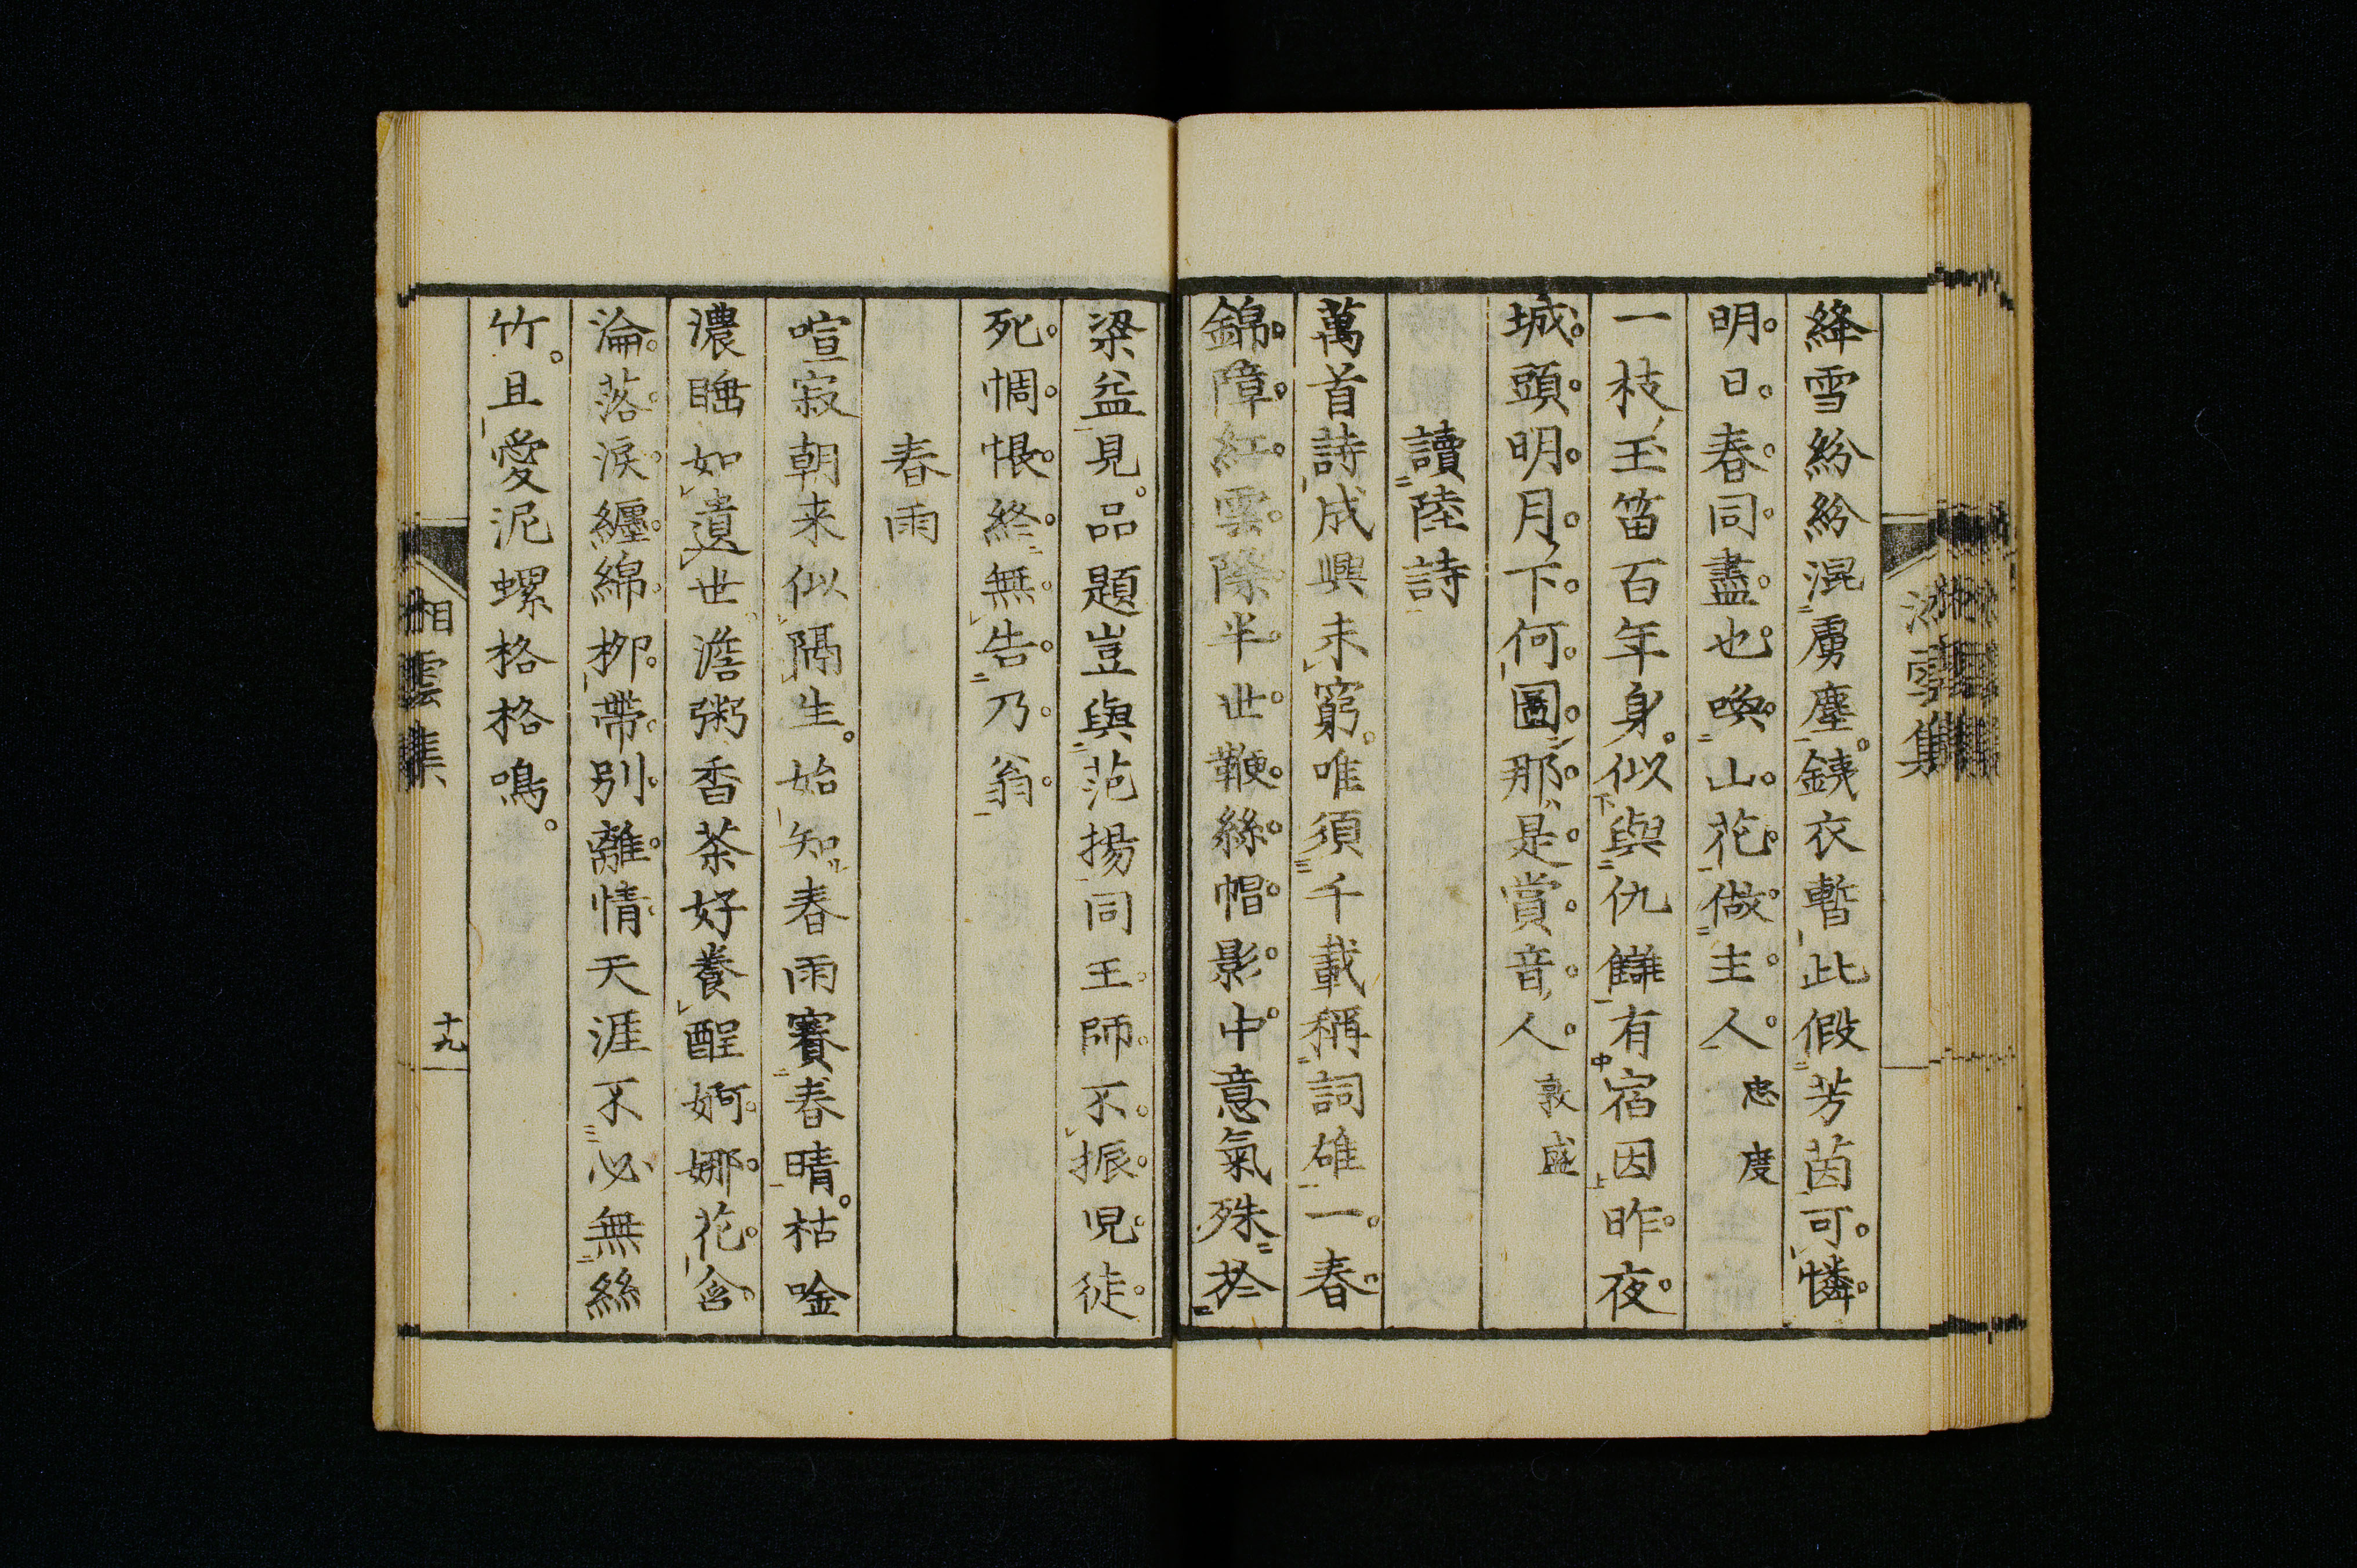 絳雪紛紛混虜塵。銕衣暫此假芳茵可憐
明日春同盡也喚山花做主人 忠度
一枝玉笛百年身。似與仇讎有宿因昨夜
城頭明月下何圖那是賞音人 敦盛
讀陸詩
萬首詩成興未窮。唯須千載稱詞雄一春
錦障紅雲際半世鞭絲帽影中意氣殊於
梁益見。品題豈與范揚同王師不振児徒
死惆悵終無告乃翁
春雨
喧寂朝来似隔生。始知春雨賽春晴。枯唫
濃睡如遺世澹粥香茶好養酲婀娜花含
淪落涙纏綿柳帶別離情天涯不必無絲
竹。且愛泥螺格格鳴。
湘雲集
十九